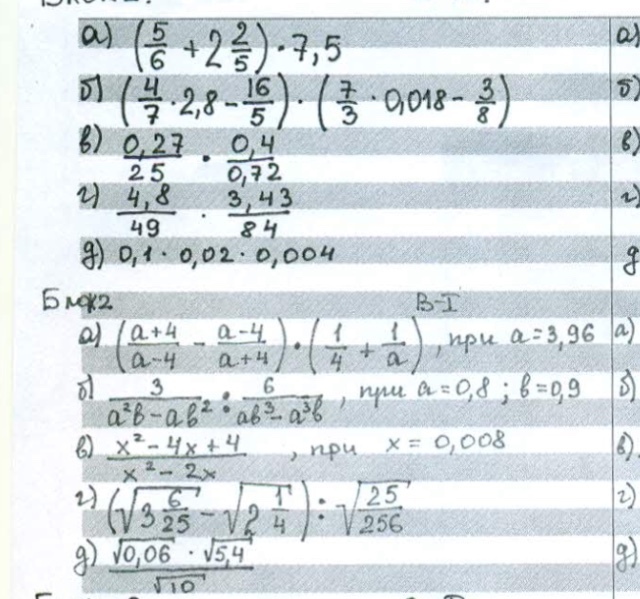 а) (5/6 + 2 2/5) · 7,5 а)
б) (4/7 · 2,8 − 16/5) · (7/3 · 0,018 − 3/8) б)
в) 0,27/25 · 0,4/0,72 в)
г) 4,8/49 · 3,43/84 г)
д) 0,1 · 0,02 · 0,004 д
Блок2 В-I
а) ((a+4)/(a−4) − (a−4)/(a+4)) · (1/4 + 1/a), при a=3,96 а)
б) 3/(a²b−ab²) : 6/(ab³−a³b), при a=0,8; b=0,9 б)
в) (x²−4x+4)/(x²−2x), при x=0,008 в).
г) (√(3 6/25) − √(2 1/4)) : √(25/256) г)
д) (√0,06 · √5,4)/√10 д)